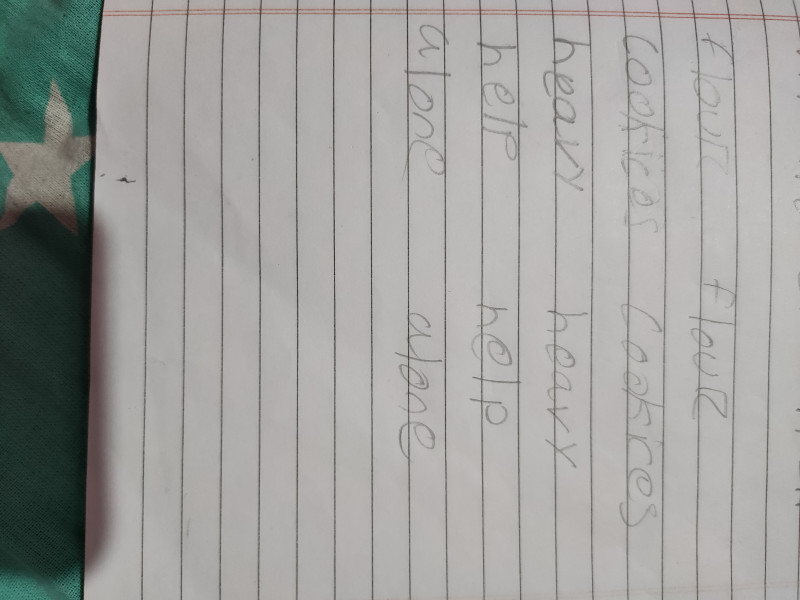 flour flour
cookies cookies
heavy heavy
help help
alone alone